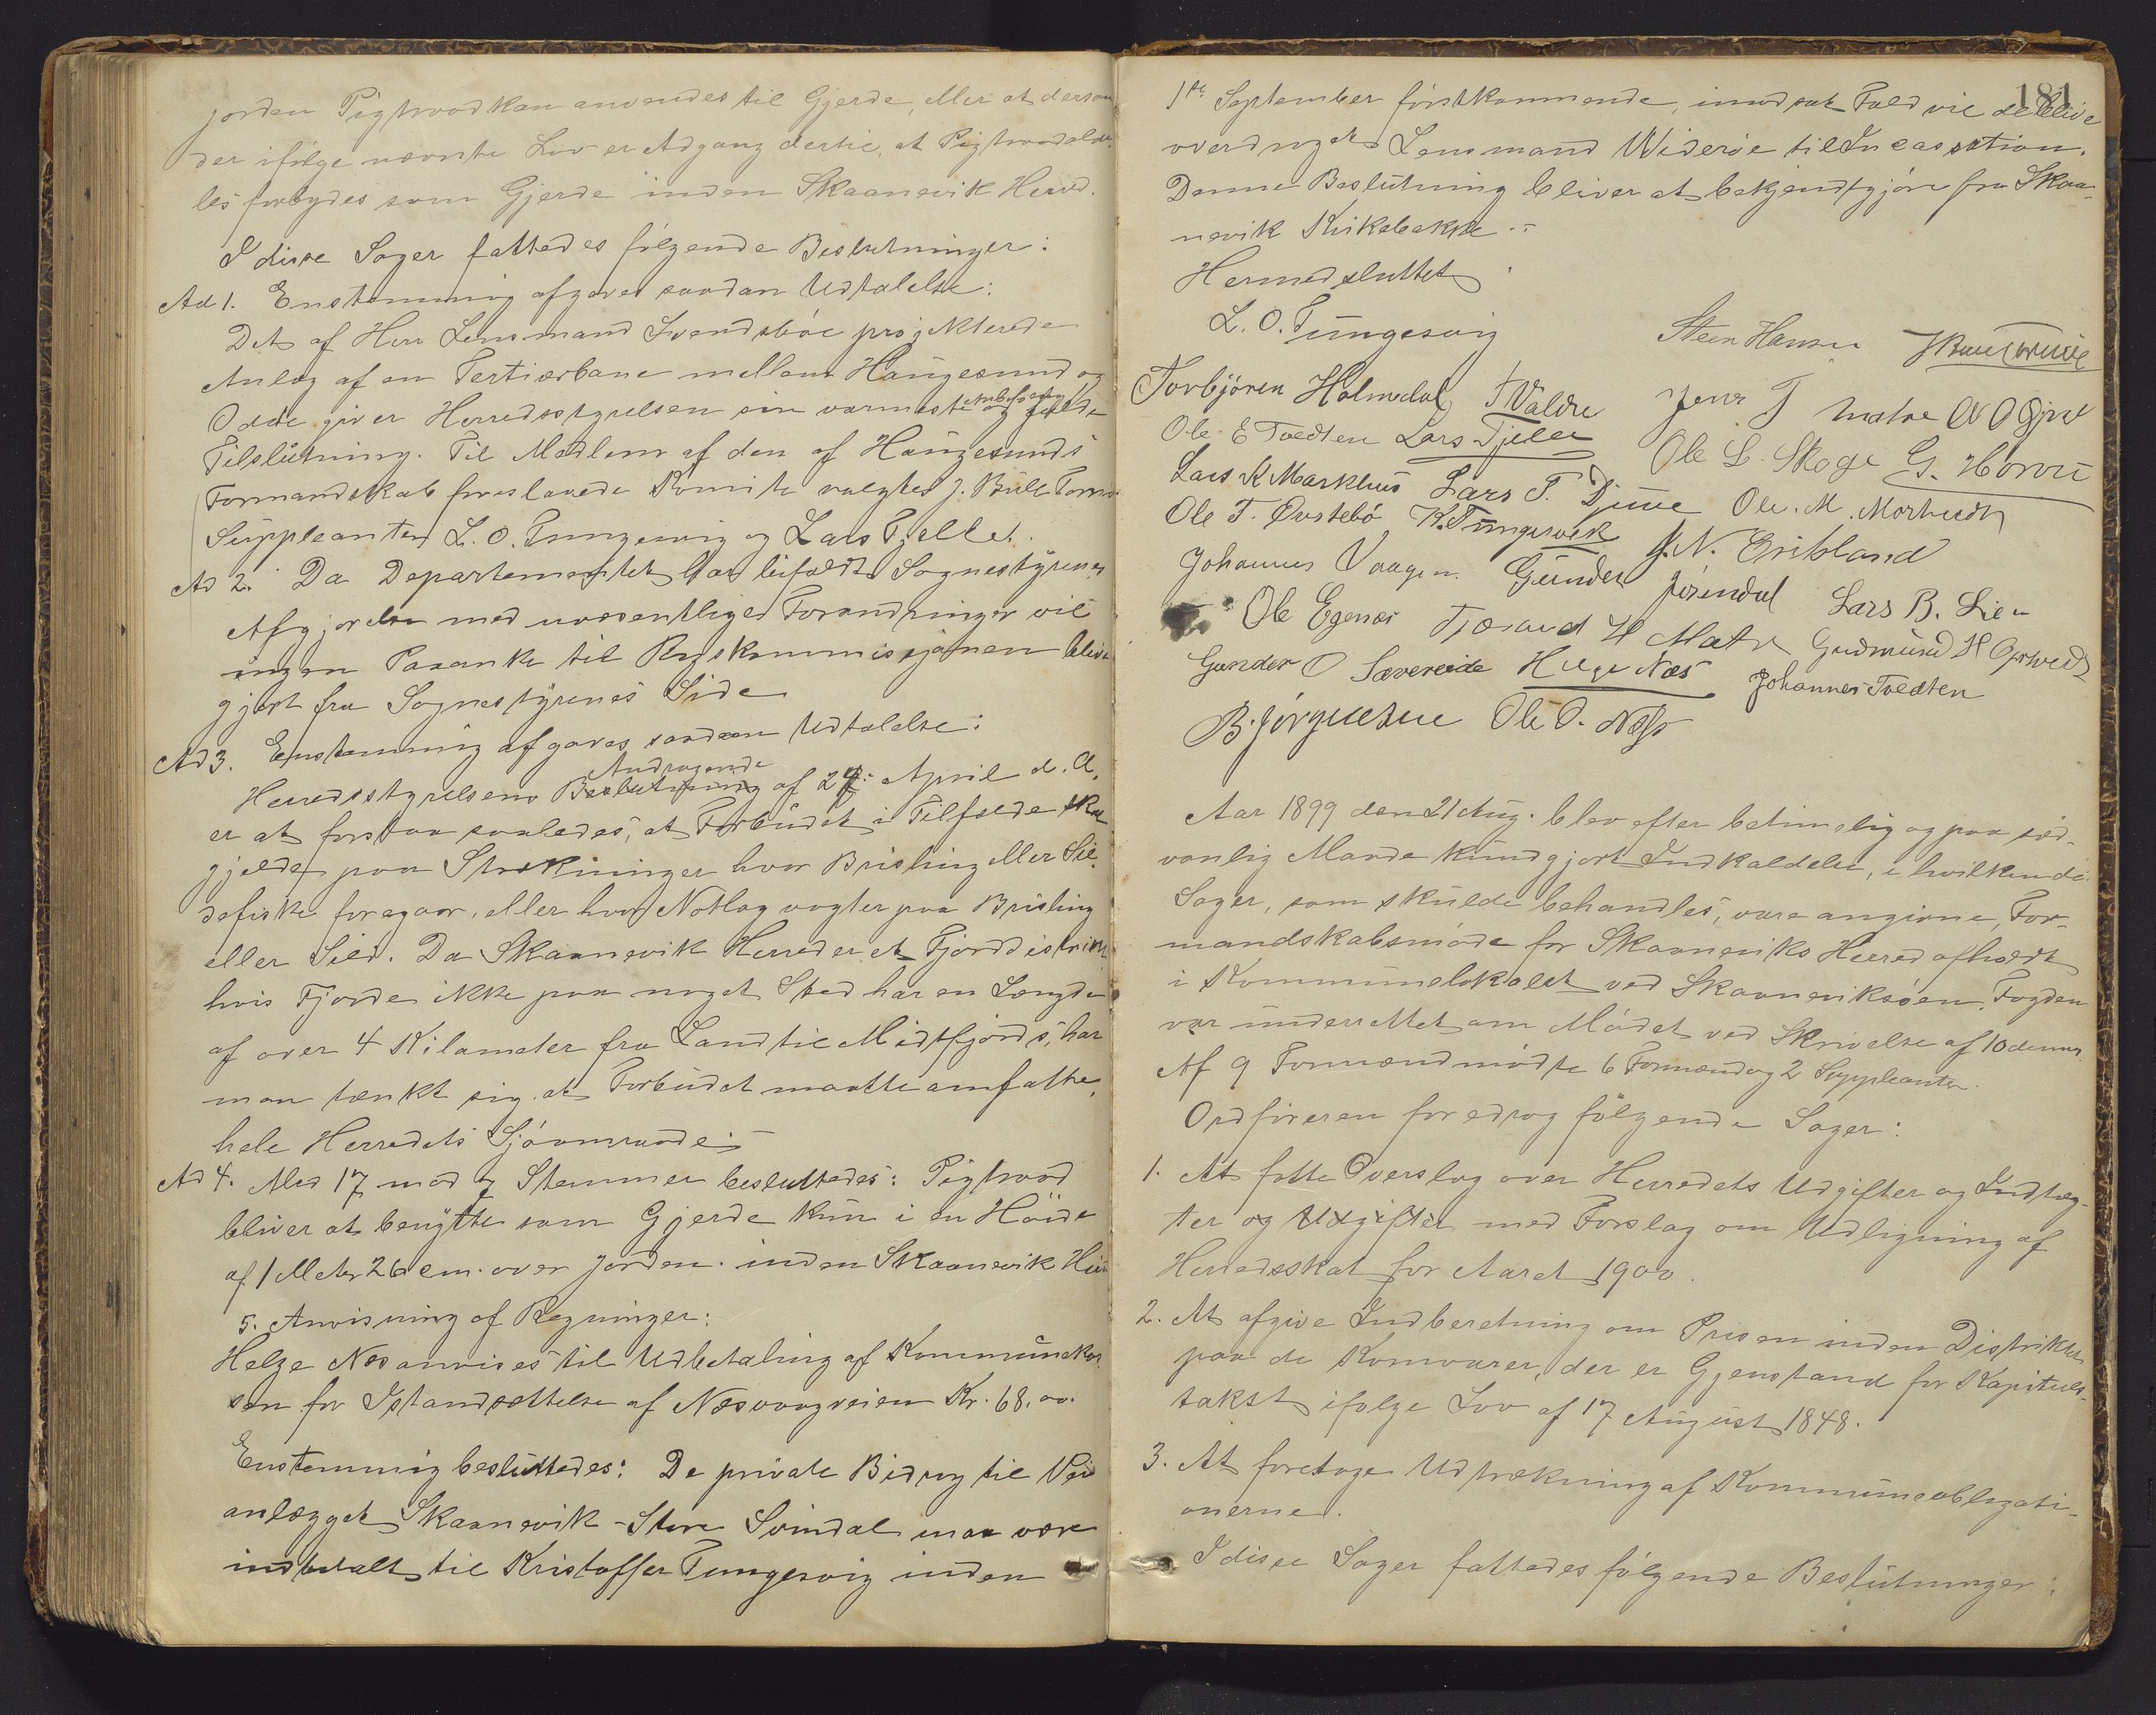 jorden Pigtraad kan anvendes til Gjerde, eller at dersom
der ifølge nævnte Lov er Adgang dertil, at Pigtraad alde-
les forbydes som Gjerde inden Skaanevik Herred.
I disse Sager fattedes følgende Beslutninger:
Ad 1. Enstemmig afgaves saadan Udtalelse:
Det af Herr Lensmand Svendsbøe projekterede
Anlæg af en Tertiærbane mellem Haugesund og
Odde giver Herredsstyrelsen sin varmeste og fulde
Tilslutning. Til Medlem af den af Haugesunds
Formandskab foreslaaede Komite valgtes J. Bull Tornøe
Suppleanter L. O. Tungesvig og Lars Fjelle.
Ad 2. Da Departementet har bifaldt Sognestyrenes
Afgjørelse med uvæsentlige Forandringer vil
ingen Paaanke til Rigskommissjonen blive
gjort fra Sognestyrenes Side
Ad 3. Enstemmig afgaves saadan Udtalelse:
Andragende
Herredsstyrelsens Beslutning af 24 April d. A.
er at forstaa saaledes, at Forbudet i Tilfælde skal
gjelde paa Strækninger hvor Brisling eller Sil-
defiske foregaar, eller hvor Notlag vogter paa Brisling
eller Sild. Da Skaanevik Herred er et Fjorddistrikt
hvis Fjorde ikke paa noget Sted har en Længde
af over 4 Kilometer fra Land til Midtfjords, har
man tænkt sig at Forbudet maatte omfatte
hele Herredets Sjøomraade.-
Ad 4. Med 17 mod 7 Stemmer besluttedes: Pigtraad
bliver at benytte som Gjerde kun i en Høide
af 1 Meter 26 cm. over Jorden. inden Skaanevik Herred
5. Anvisning af Regninger:
Helge Næs anvises til Udbetaling af Kommunekas-
sen for Istandsættelse af Næsvaagveien Kr. 68,00.
Enstemmig besluttedes: De private Bidrag til Vei
anlægget Skaanevik - Store Svindal maa være
indbetalt til Kristoffer Tungesvig inden
181
1ste September førstkommende, imodsat Fald vil de blive
overdraget Lensmand Widerøe til Incassation.
Denne Beslutning bliver at bekjendtgjøre fra Skaa-
nevik Kirkebakke.-
Hermed sluttet
L. O. Tungesvig
Steen Hansen J Bull Tornøe
Torbjören Holmedal Valdre Jens T Matre O O Gjra
Ole E Tvedten Lars Fjelle Ole L. Skoge G. Høvru
Lars K Markhus Lars T. Djuve Ole. M. Mortvedt
Ole T. Øvstebø K. Tungesvik J. N. Eribland
Johannes Vaagen Gunder Jørendal Lars B. Lie
Ole Egenæs Tjerand H Matre Gudmund H Opsved
Gunder O Sævereide Helge Næs Johannes Tvedten
B. Jørgensen Ole O. Næss
Aar 1899 den 21 Aug. blev efter betimelig og paa sæd-
vanlig Maade kundgjort Indkaldelse, i hvilken de
Sager, som skulde behandles, vare angivne, For-
mandskabsmøde for Skaaneviks Herred afholdt
i Kommunelokalet ved Skaaneviksøen. Fogden
var underrettet om Mødet ved Skrivelse af 10 dennes.
Af 9 Formænd mødte 6 Formænd og 2 Suppleanter.
Ordføreren foredrog følgende Sager:
1. At fatte Overslag over Herredets Udgifter og Indtæg-
ter og Udgifter med Forslag om Udligning af
Herredsskat for Aaret 1900.
2. At afgive Indberetning om Prisen inden Distriktet
paa de Kornvarer, der er Gjenstand for Kapitels-
takst ifølge Lov af 17 August 1848.
3. At foretage Udtrækning af Kommuneobligati-
onerne.
I disse Sager fattedes følgende Beslutninger: